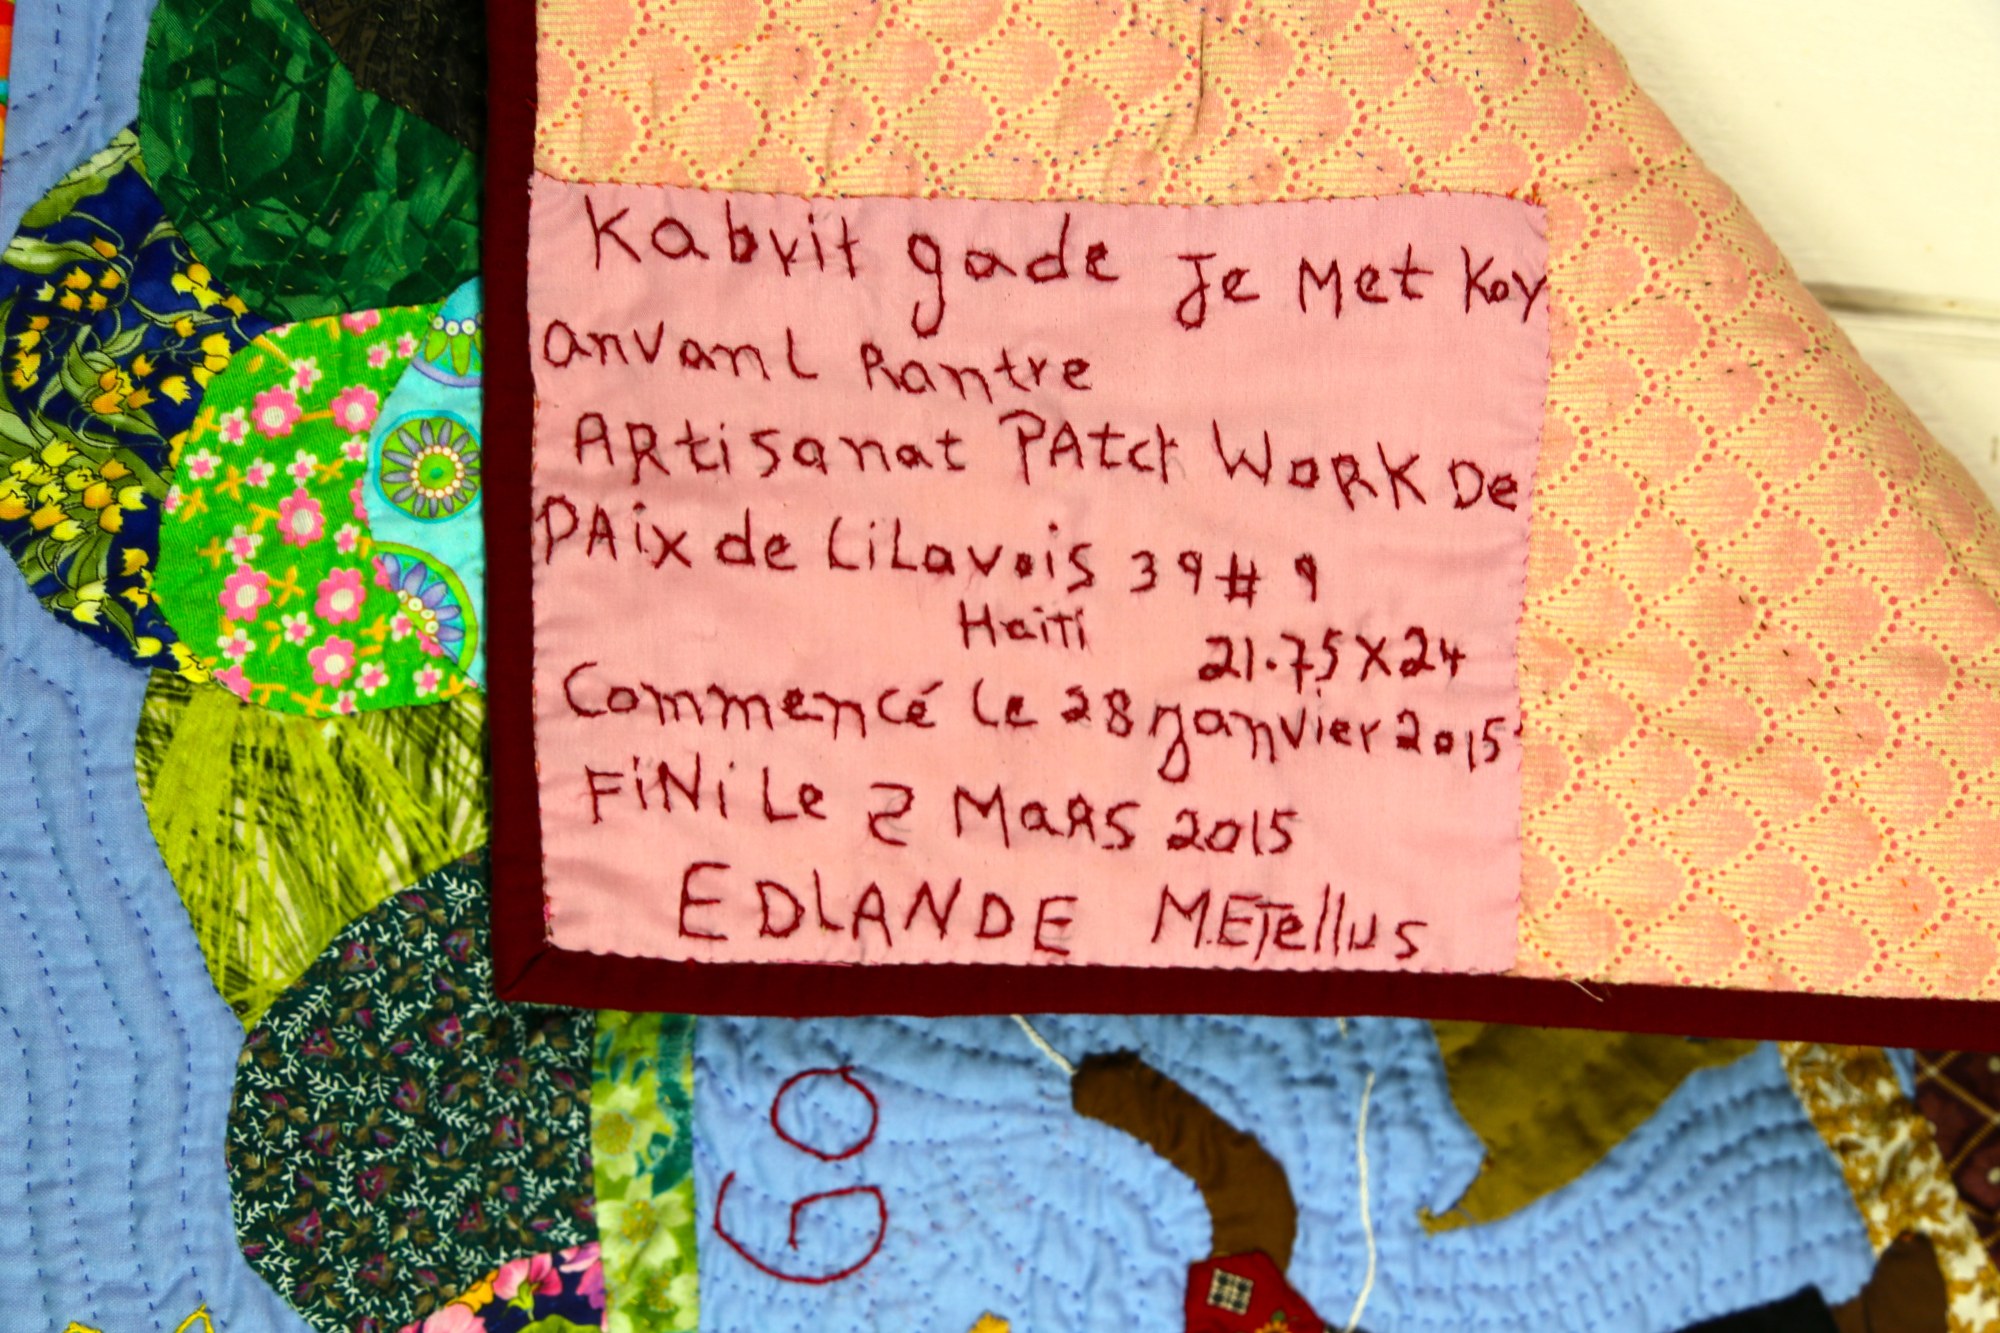 Kabrit gade Je Met Kay
anvanl Rantre
ARtisanat PAtch WoRK De
PAix de LiLavois 39 # 9
Haiti
21.75 X 24
Commencé Le 28 janvier 2015
FiNi Le 2 MaRS 2015
EDLANDE METellus
GO